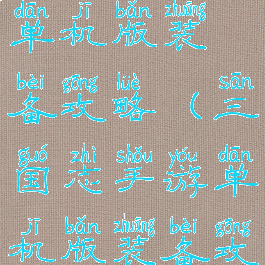 dān jī bǎn zhuāng
单机版装
bèi gōng lüè sān
备攻略（三
guó zhì shǒu yóu dān
国志手游单
jī bǎn zhuāng bèi gōng
机版装备攻